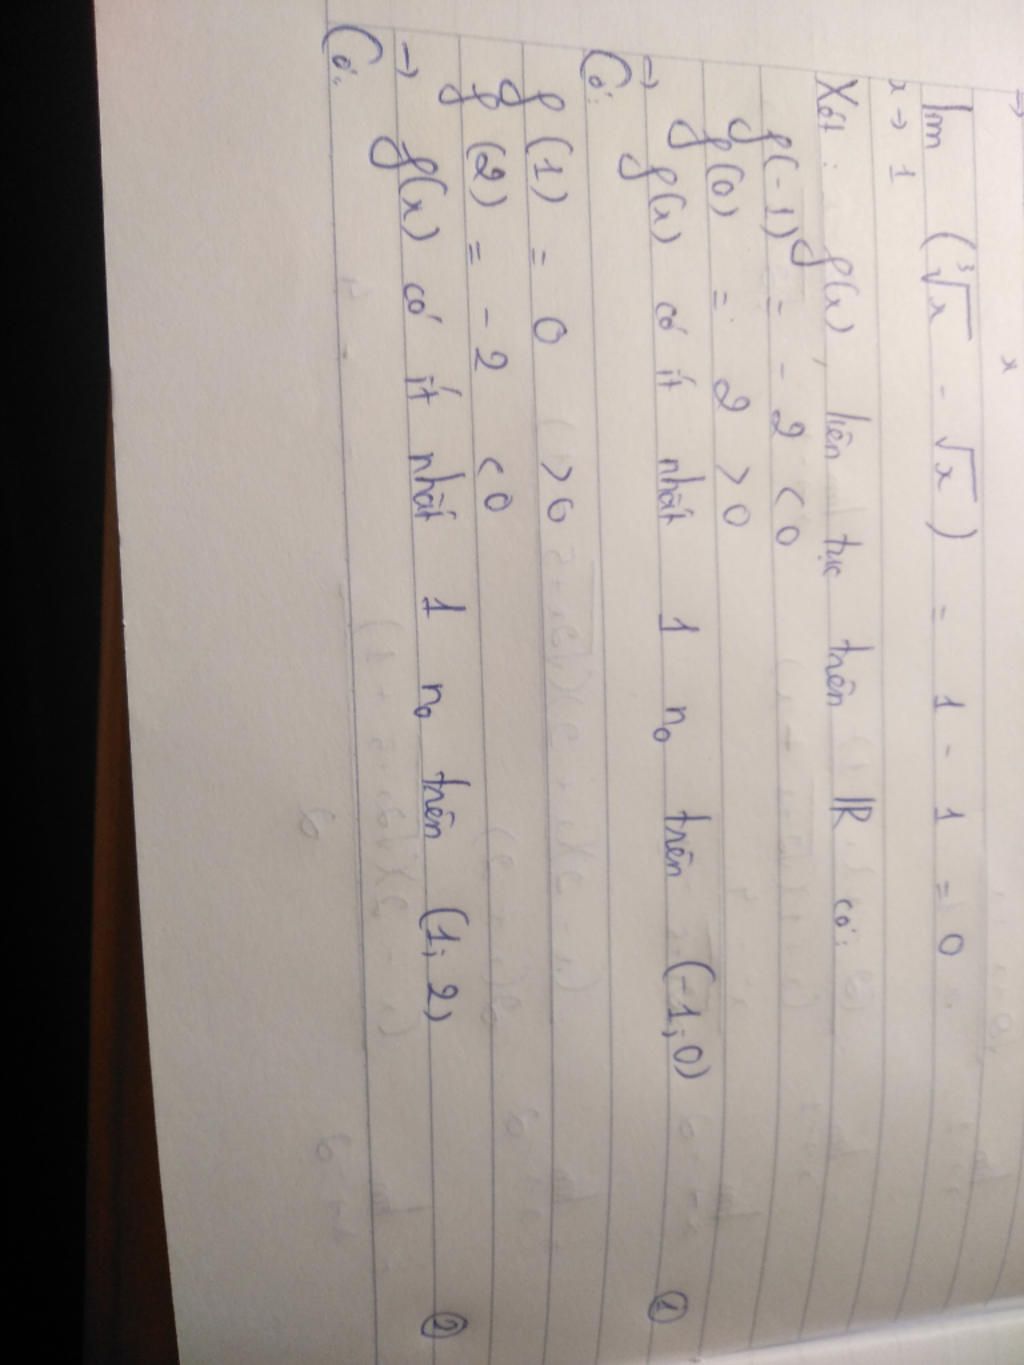 x
lim (∛x - √x) = 1 - 1 = 0
x → 1
Xét: f(x) liên tục trên IR có:
f(-1) = -2 < 0
f(0) = 2 > 0
→ f(x) có ít nhất 1 n0 trên (-1; 0) ①
Có:
f(1) = 0 > 0
f(2) = -2 < 0
→ f(x) có ít nhất 1 n0 trên (1; 2) ②
Có: